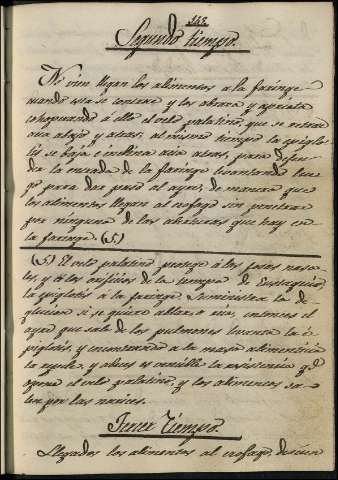 243
Segundo tiempo.
No vien llegan los alimentos a la faringe
cuando esta se contrae y los abraza y aprieta
cohoperando á ello el velo palatino, que se retrae
acia abajo y atras; al mismo tiempo la epiglo-
tis se baja e inclina acia atras, para defen-
der la entrada de la laringe levantandose lue-
go para dar paso al ayre, de manera que
los alimentos llegan al esofago sin penetrar
por ninguna de las abeturas que hay en
la faringe. (5)
(5) El velo palatino protege á las fosas nasa-
les, y á los orificios de la trompa de Eustaquio
la epiglotis á la laringe. Suministra la de-
glucion si se quiere ablar, o reir, entonces el
ayre que sale de los pulmones levanta la e-
piglotis, y encontrando a la masa alimenticia
la ayuda, y abeces es vencible la resistencia qe
opone el velo palatino, y los alimentos sa-
len por las narices.
Tercer Tiempo.
Llegados los alimentos al esofago, descien